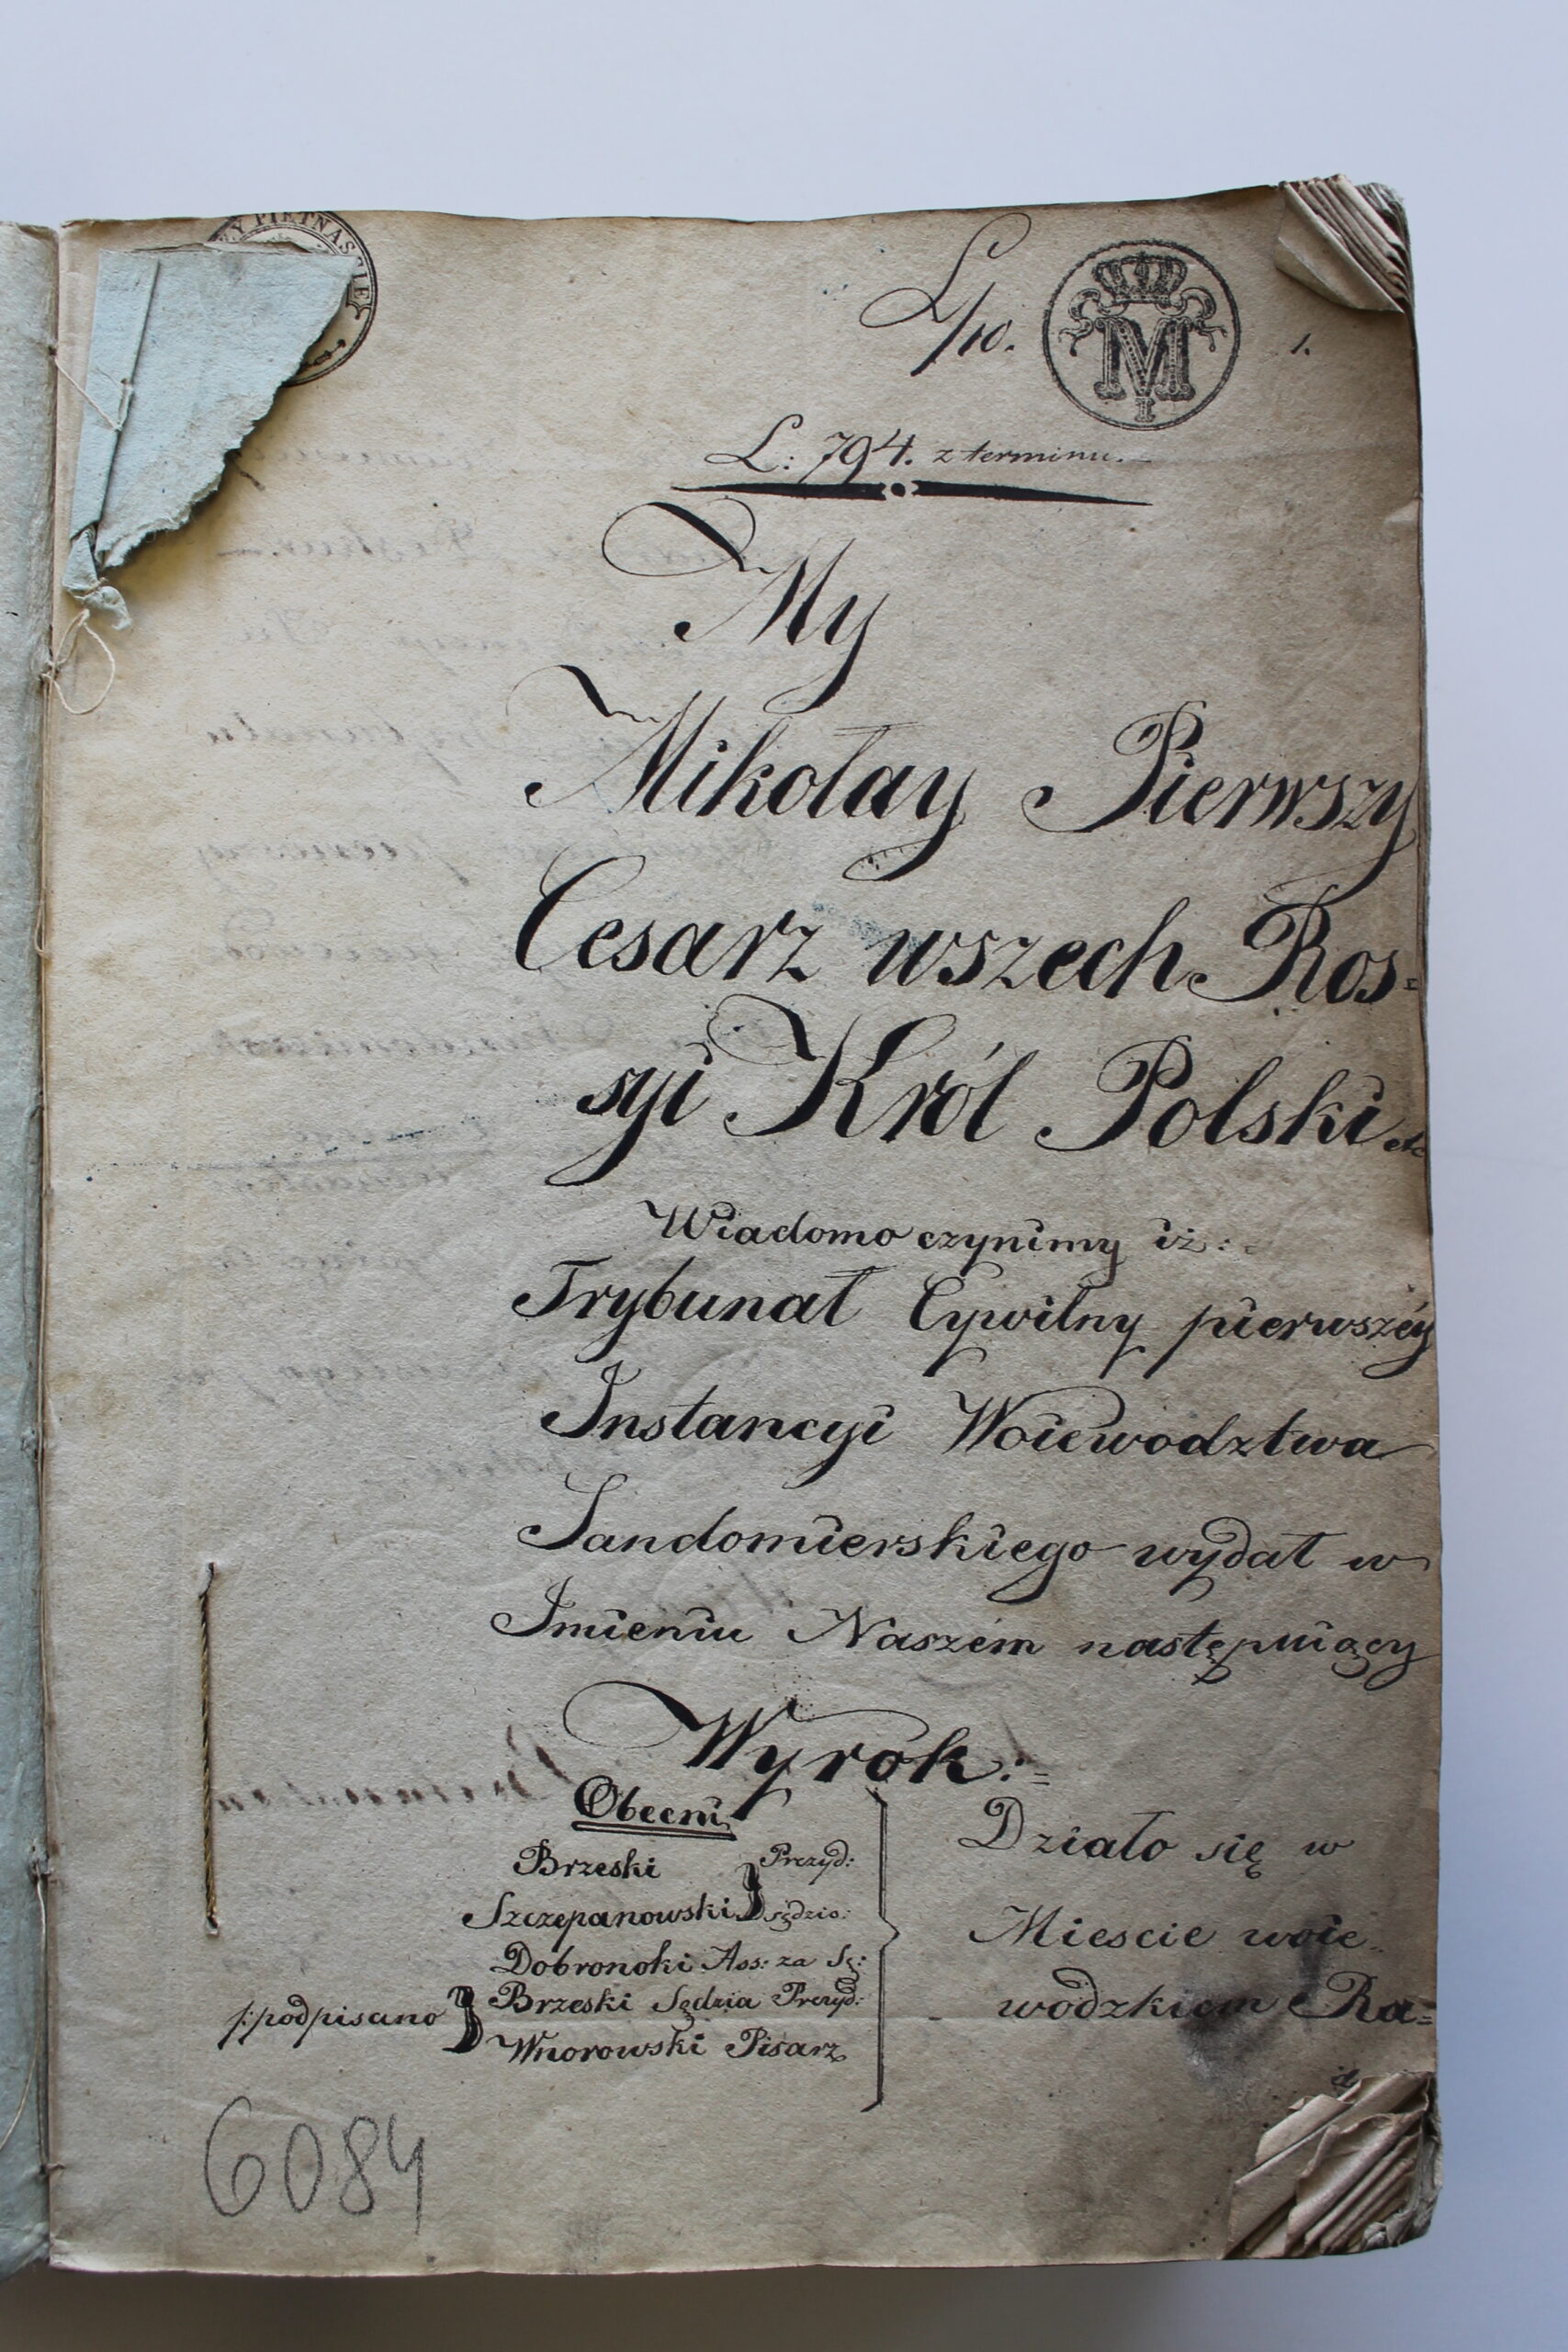 Y PIETNAŚCIE
L/10.
M
I
1.
L: 794. z terminu.
My
Mikołay Pierwszy
Cesarz wszech Ros=
syi Król Polski etc
Wiadomo czynimy iż:
Trybunał Cywilny pierwszéy
Instancyi Woiewodztwa
Sandomierskiego wydał w
Imieniu Naszém następuiący
Wyrok:=
Obecni
Brzeski Prezyd:
Szczepanowski Sędzio:
Dobronoki Ass: za Sę:
/:podpisano Brzeski Sędzia Prezyd:
Wnorowski Pisarz
Działo się w
Miescie woie
wodzkiem Ra=
6084